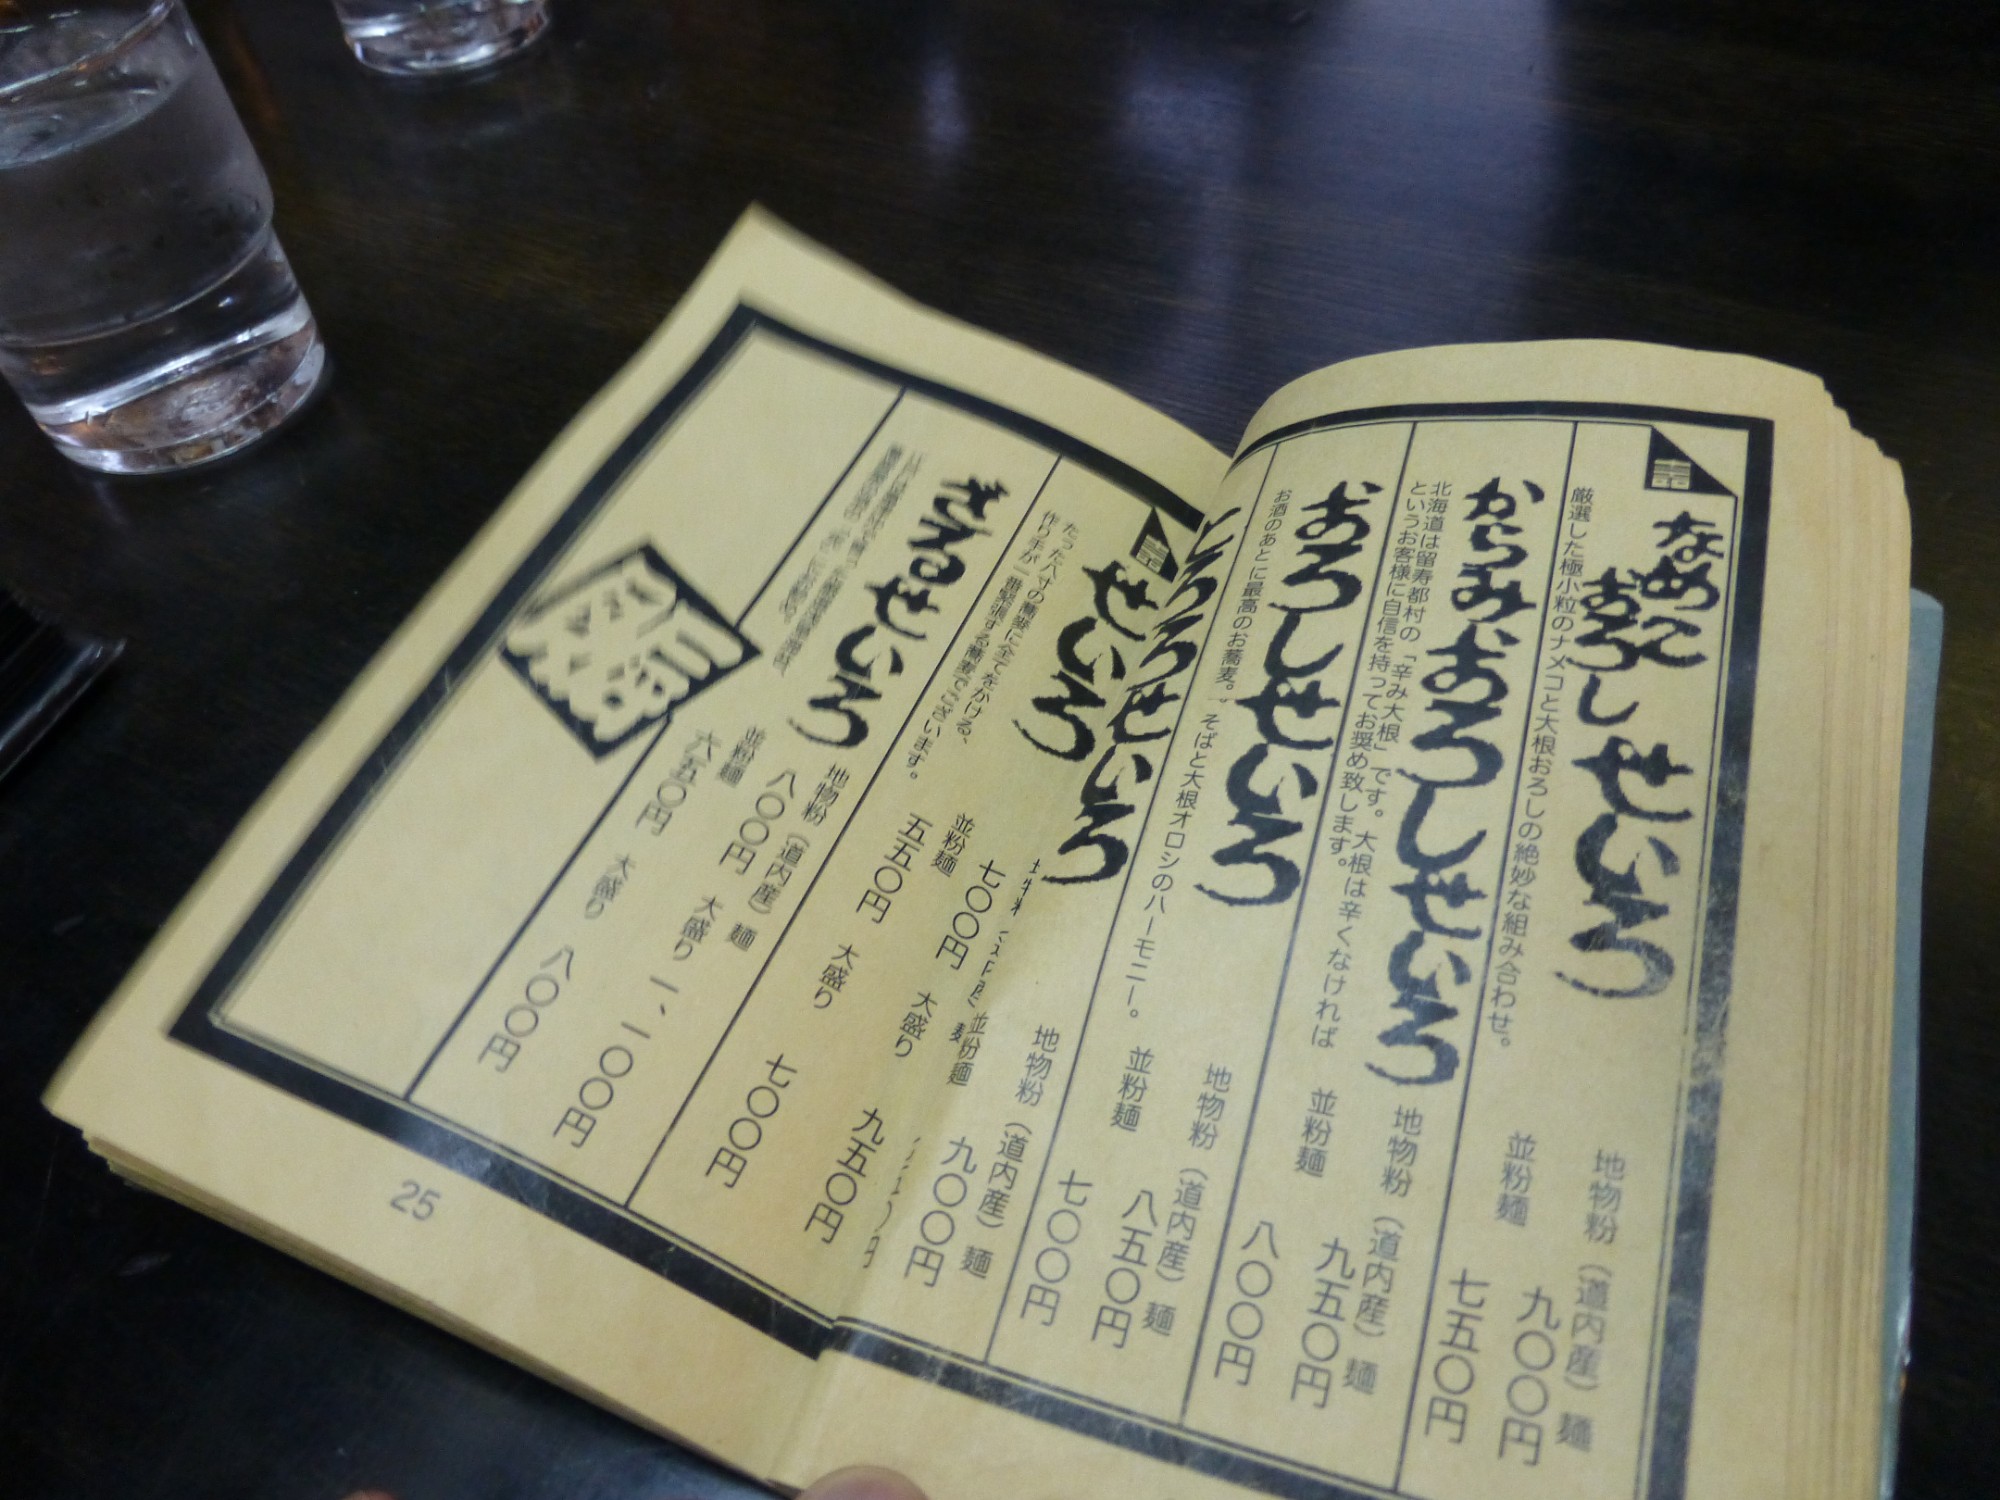 なめこおろしせいろ
厳選した極小粒のナメコと大根おろしの絶妙な組み合わせ。
地物粉(道内産)麺 九〇〇円
並粉麺 七五〇円
からみおろしせいろ
北海道は留寿都村の「辛み大根」です。大根は辛くなければ
というお客様に自信を持ってお奨め致します。
地物粉(道内産)麺 九五〇円
並粉麺 八〇〇円
おろしせいろ
お酒のあとに最高のお蕎麦。そばと大根オロシのハーモニー。
地物粉(道内産)麺 八五〇円
並粉麺 七〇〇円
とろろせいろ
地物粉(道内産)麺 九〇〇円
並粉麺
せいろ
たった八寸の蕎麦に全てをかける、
作り手が一番緊張する蕎麦でございます。
七〇〇円 大盛り 九五〇円
並粉麺 五五〇円 大盛り 七〇〇円
ざるせいろ
地物粉(道内産)麺
八〇〇円 大盛り 一、一〇〇円
並粉麺 六五〇円 大盛り 八〇〇円
25